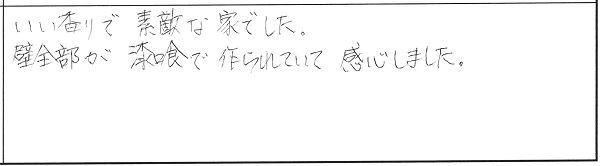 いい香りで 素敵な 家でした。
壁全部が 漆喰で 作られていて 感心しました。